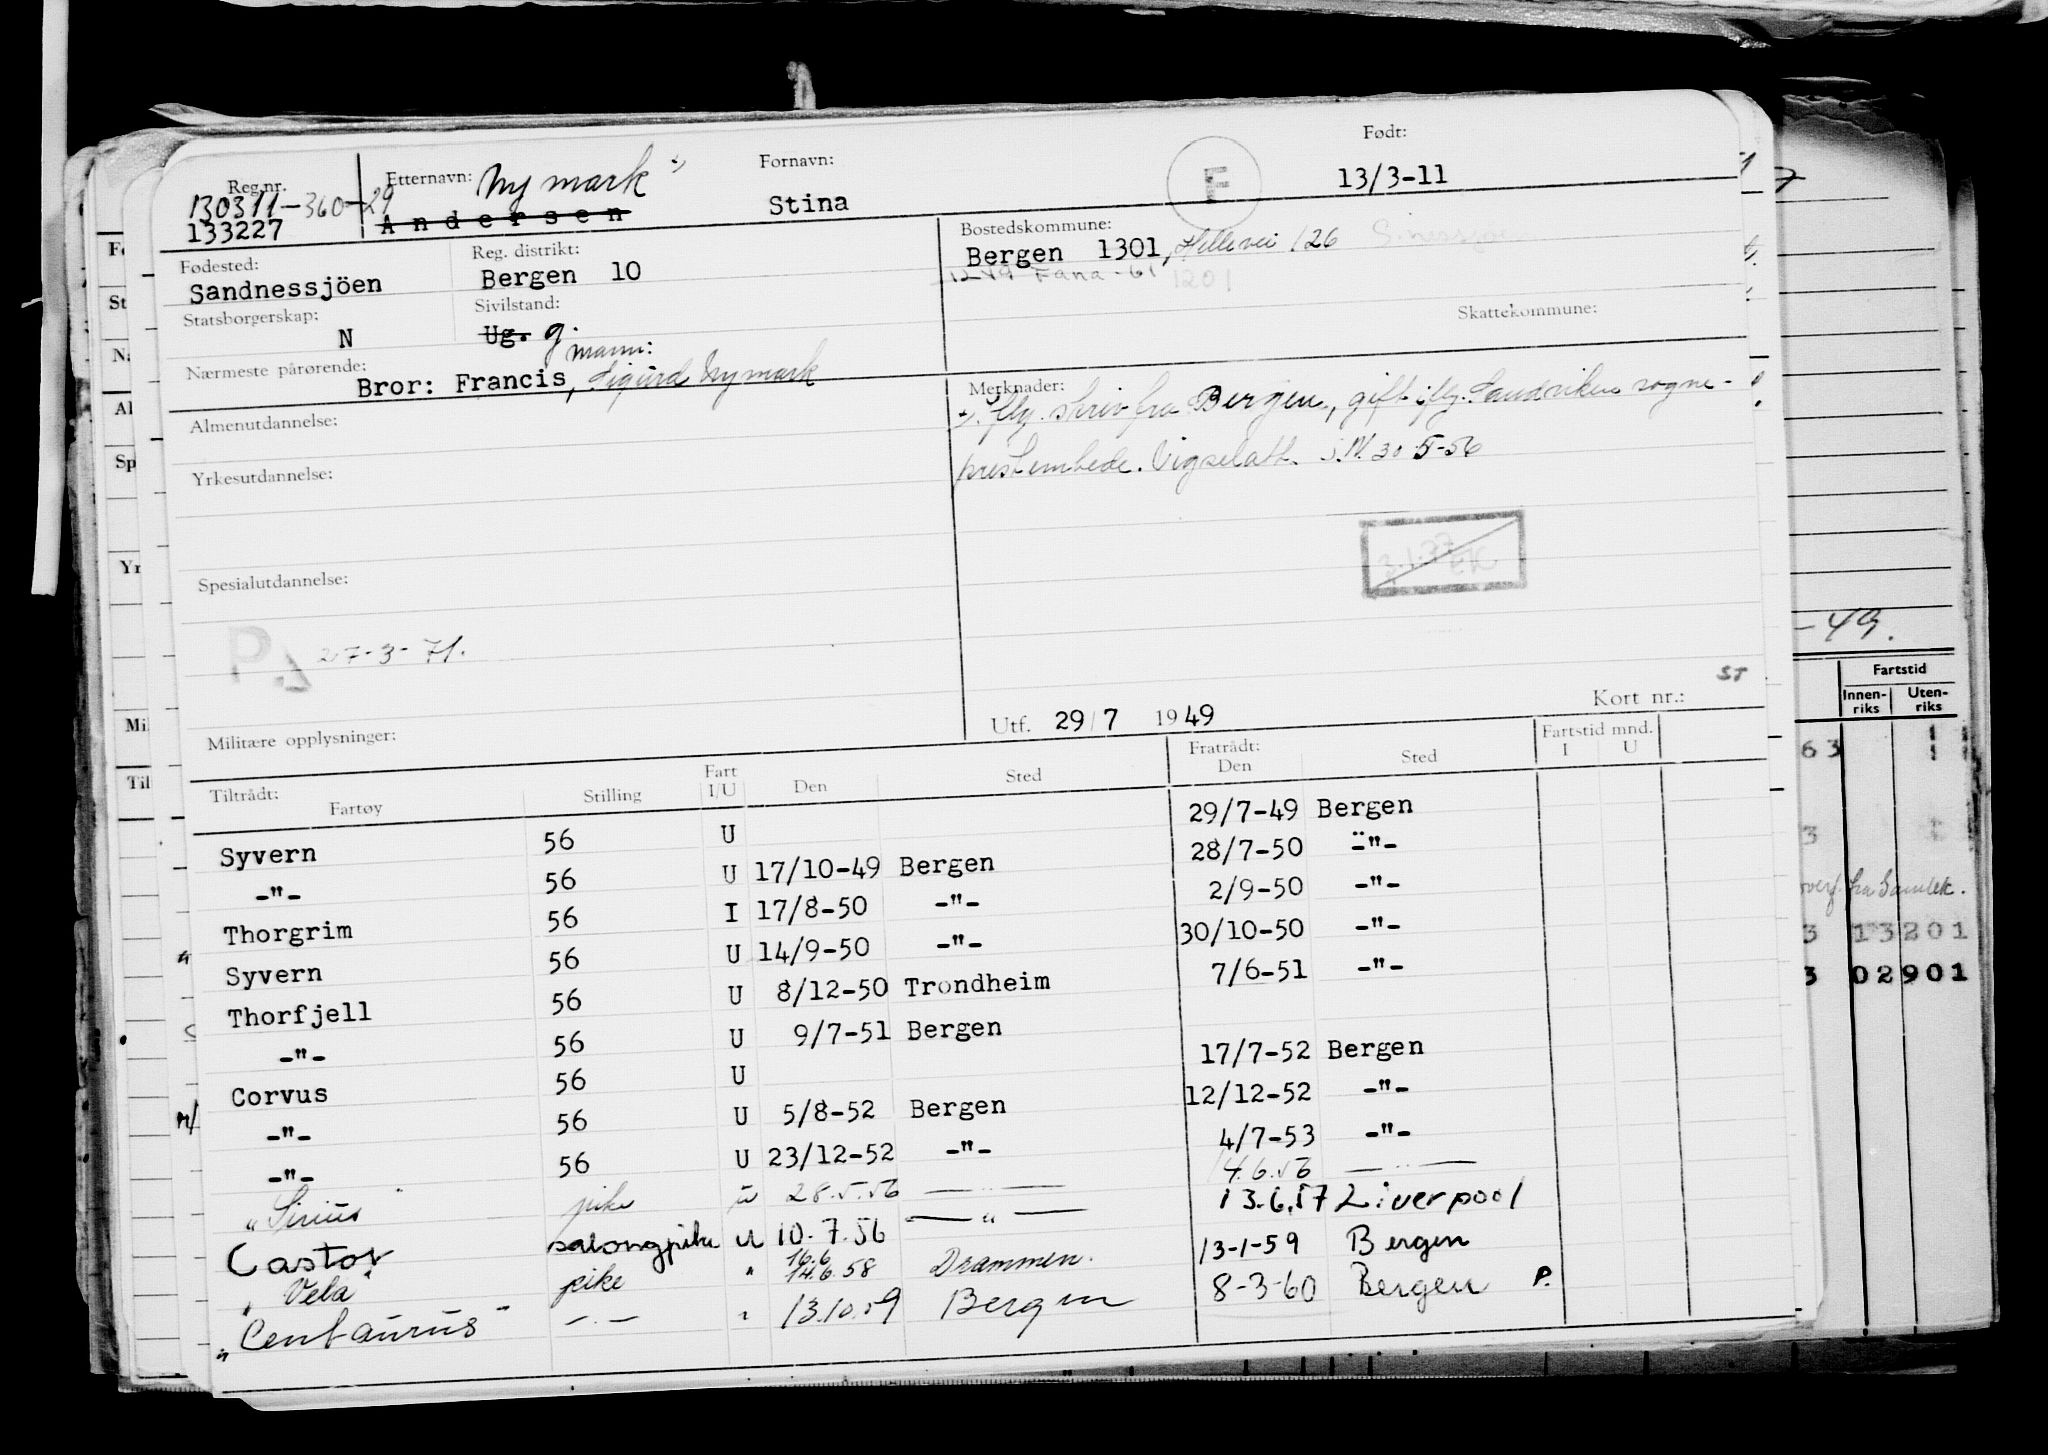 Reg.nr. Etternavn: Nymark Fornavn: Født:
130311-360-29
133227 Andersen Stina F 13/3-11
Fødested: Reg. distrikt: Bostedskommune:
Sandnessjöen Bergen 10 Bergen 1301, Hellevei 126
1249 Fana-61 1201
Statsborgerskap: Sivilstand: Skattekommune:
N Ug. g.
Nærmeste pårørende: mann: Merknader:
Bror: Francis, Sigurd Nymark
flg. skriv fra Bergen, gift iflg. Sandviken sogne-
prestembede. Vigselatt. 30-5-56
Almenutdannelse:
Yrkesutdannelse:
Spesialutdannelse:
27-3-71.
ST
Militære opplysninger: Utf. 29/7 1949 Kort nr.:
Tiltrådt: Fratrådt: Fartstid mnd.
Fartøy Stilling Fart I/U Den Sted Den Sted I U
Syvern 56 U 29/7-49 Bergen
-"- 56 U 17/10-49 Bergen 28/7-50 -"-
Thorgrim 56 I 17/8-50 -"- 2/9-50 -"-
Syvern 56 U 14/9-50 -"- 30/10-50 -"-
Thorfjell 56 U 8/12-50 Trondheim 7/6-51 -"-
-"- 56 U 9/7-51 Bergen
Corvus 56 U 17/7-52 Bergen
-"- 56 U 5/8-52 Bergen 12/12-52 -"-
-"- 56 U 23/12-52 -"- 4/7-53 -"-
"Sirius" pike u 28.5.56 — " — 14.6.56 — " —
Castor salongpike U 10.7.56 — " — 13.6.57 Liverpool
16.6
"Vela" pike " 14.6.58 Drammen. 13-1-59 Bergen
"Centaurus" -.- " 13.10.59 Bergen 8-3-60 Bergen P.
-49.
Fartstid
Innen-riks Uten-riks
63
3
overf. fra Samlek.
3 13201
3 02901